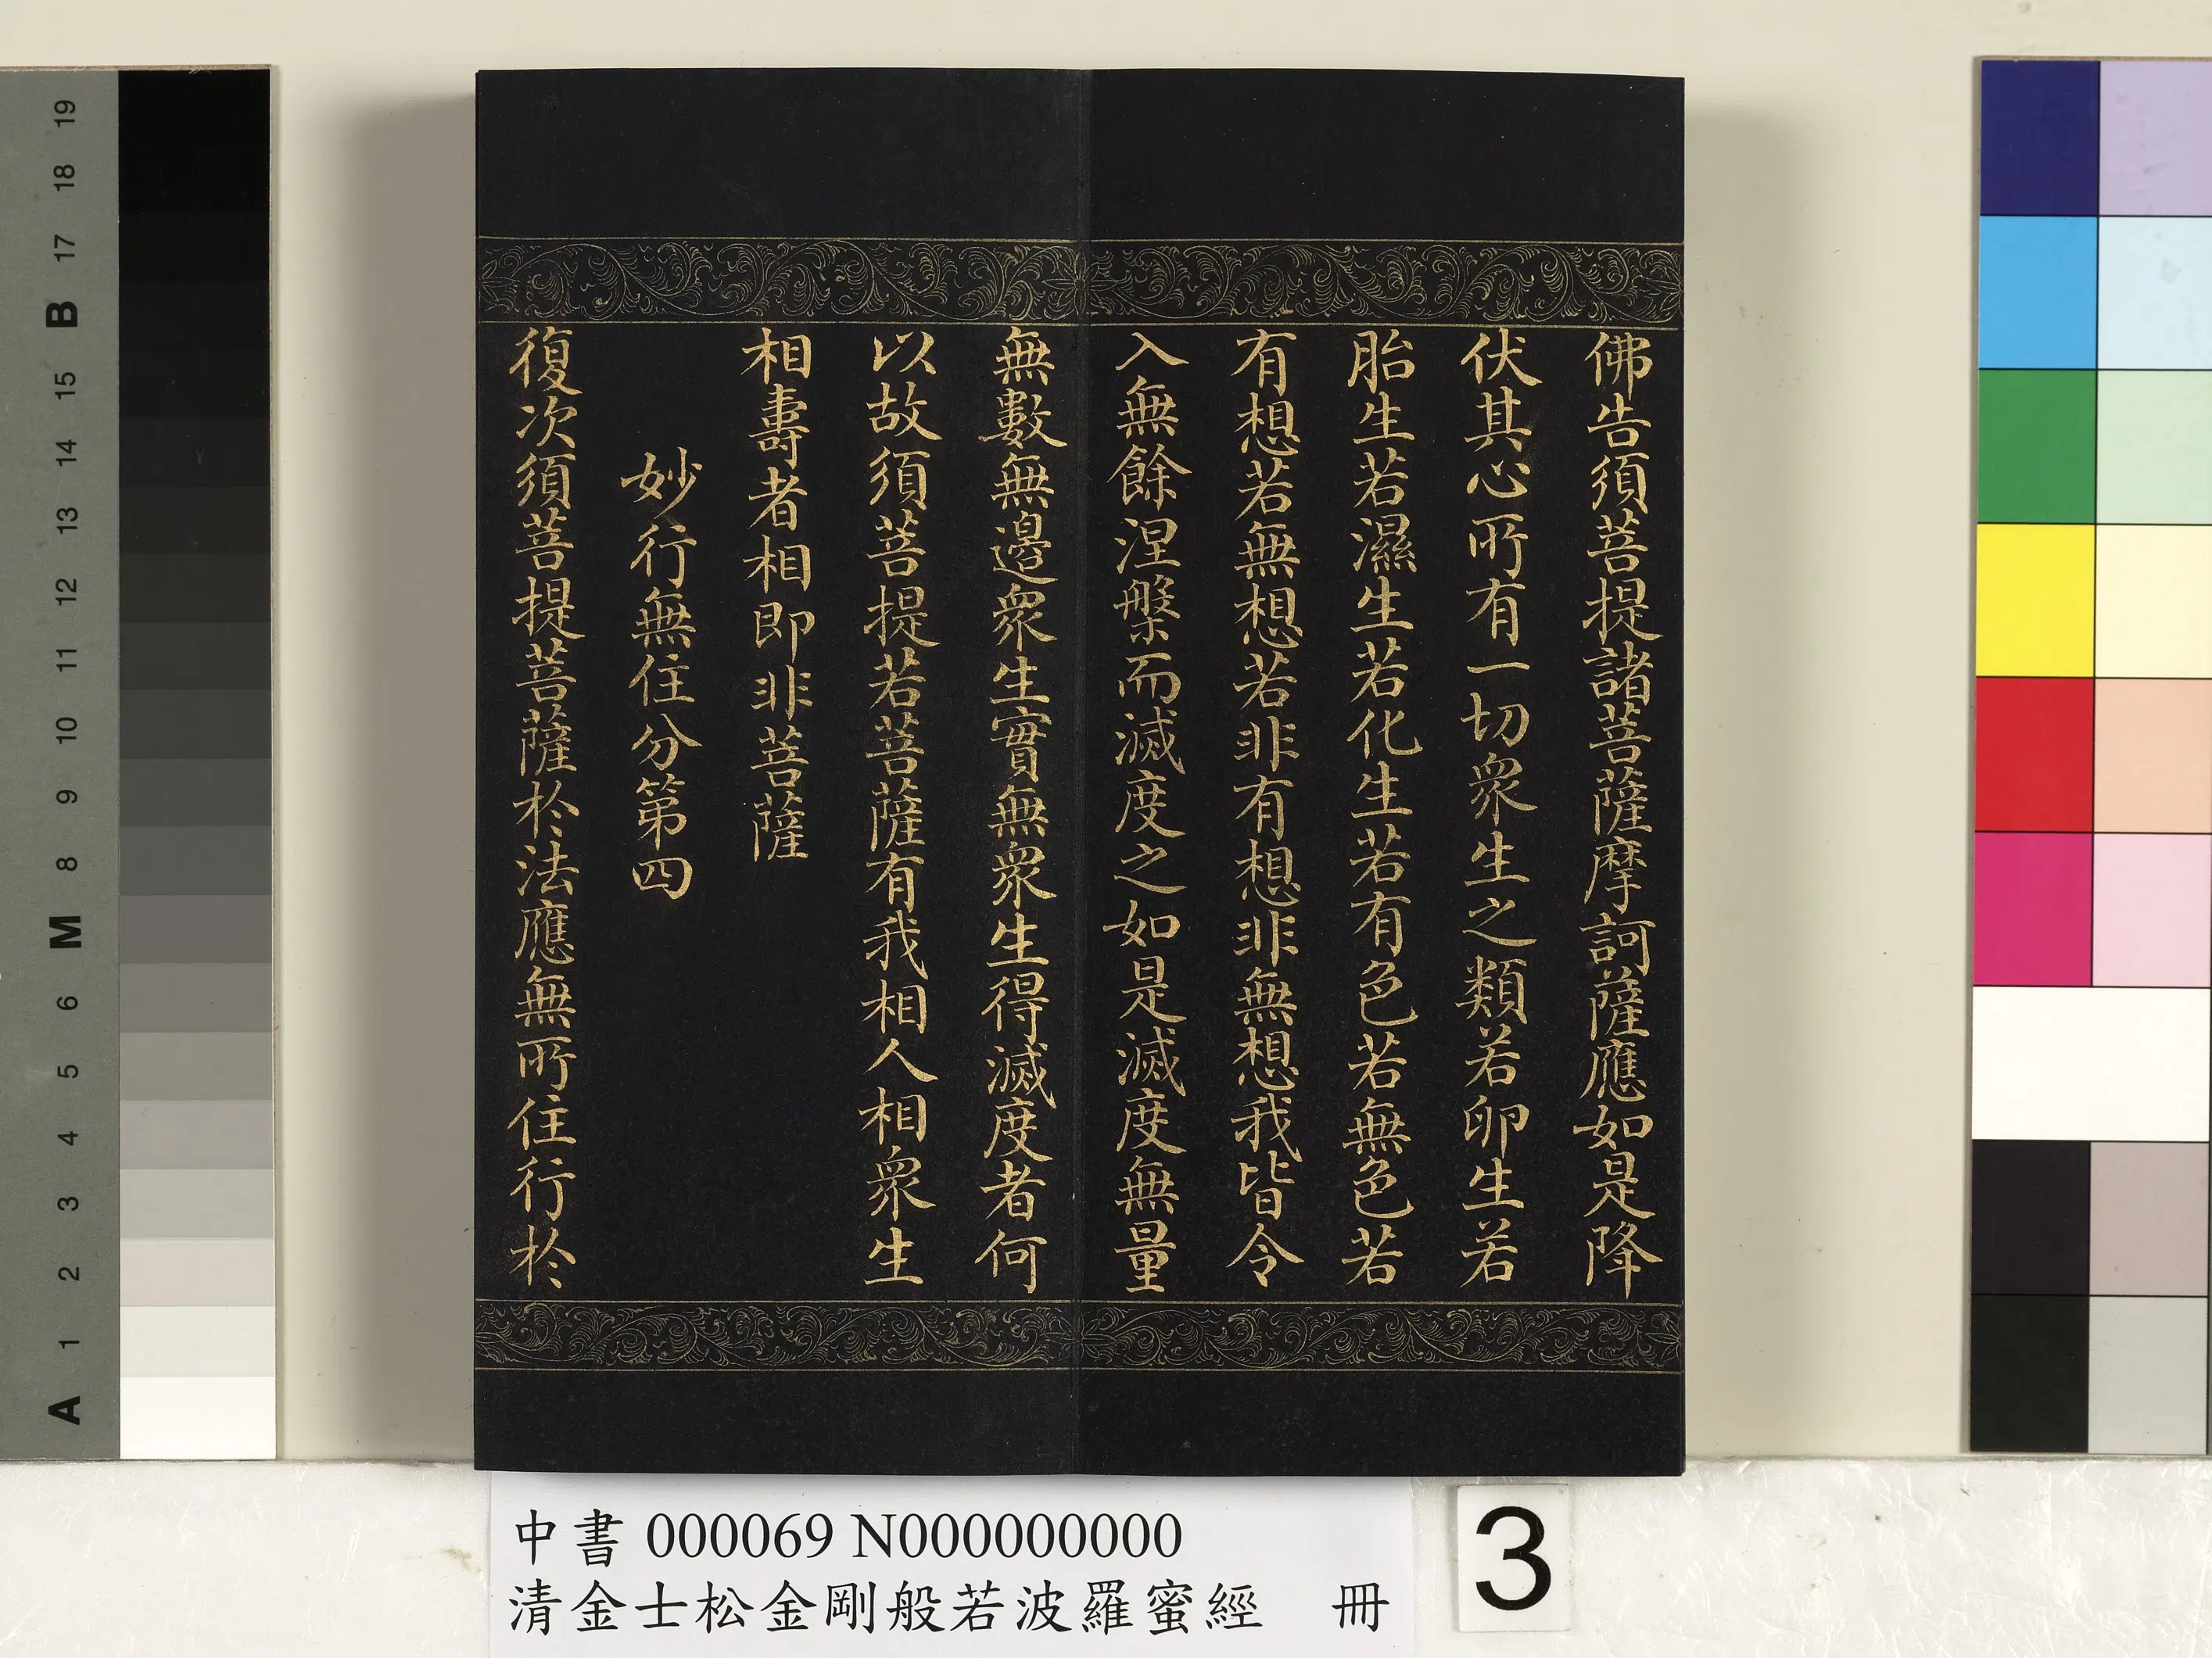 佛告須菩提諸菩薩摩訶薩應如是降
伏其心所有一切眾生之類若卵生若
胎生若濕生若化生若有色若無色若
有想若無想若非有想非無想我皆令
入無餘涅槃而滅度之如是滅度無量
無數無邊眾生實無眾生得滅度者何
以故須菩提若菩薩有我相人相眾生
相壽者相即非菩薩
妙行無住分第四
復次須菩提菩薩於法應無所住行於
中書 000069 N000000000
清金士松金剛般若波羅蜜經 冊
3
A 1 2 3 4 5 6 M 8 9 10 11 12 13 14 15 B 17 18 19